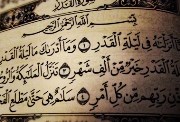 بِسْمِ ٱللَّهِ ٱلرَّحْمَٰنِ ٱلرَّحِيمِ
فِى لَيْلَةِ ٱلْقَدْرِ ١ وَمَآ أَدْرَىٰكَ مَا لَيْلَةُ
ٱلْقَدْرِ خَيْرٌ مِّنْ أَلْفِ شَهْرٍ ٣ تَنَزَّلُ ٱلْمَلَٰٓئِكَةُ
رَبِّهِم مِّن كُلِّ أَمْرٍ ٤ سَلَٰمٌ هِىَ حَتَّىٰ مَطْلَعِ